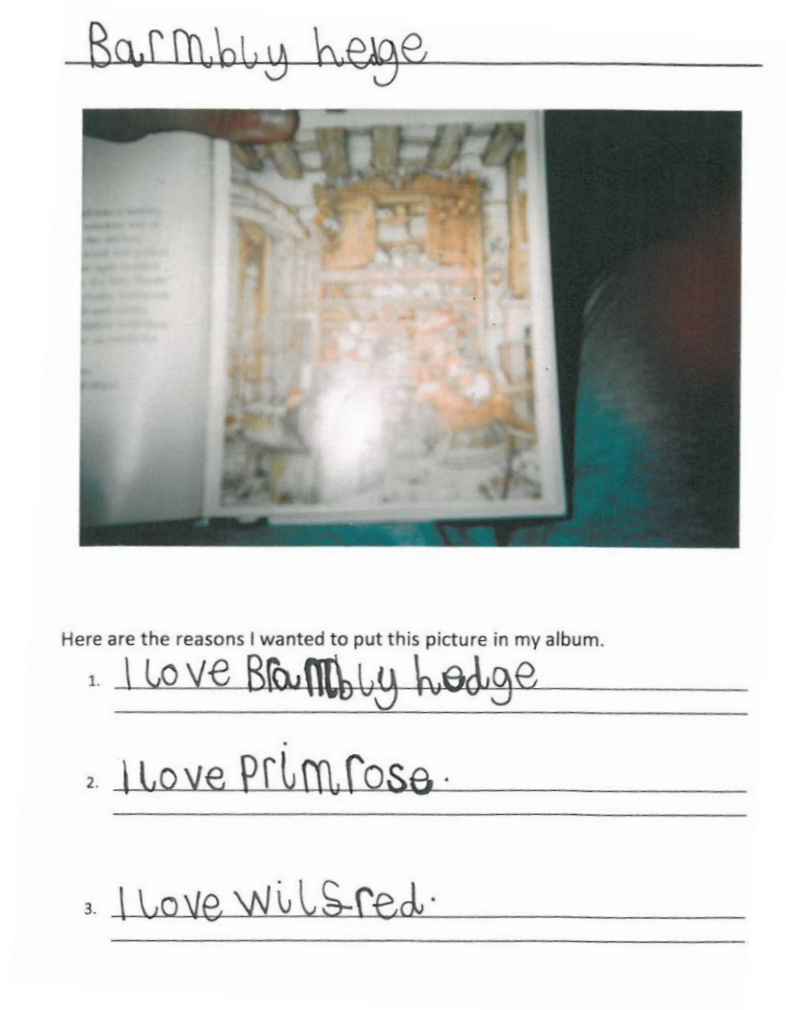 Barmbly hedge
Here are the reasons I wanted to put this picture in my album.
1. I love Brambly hedge
2. I love primrose.
3. I love wilfred.